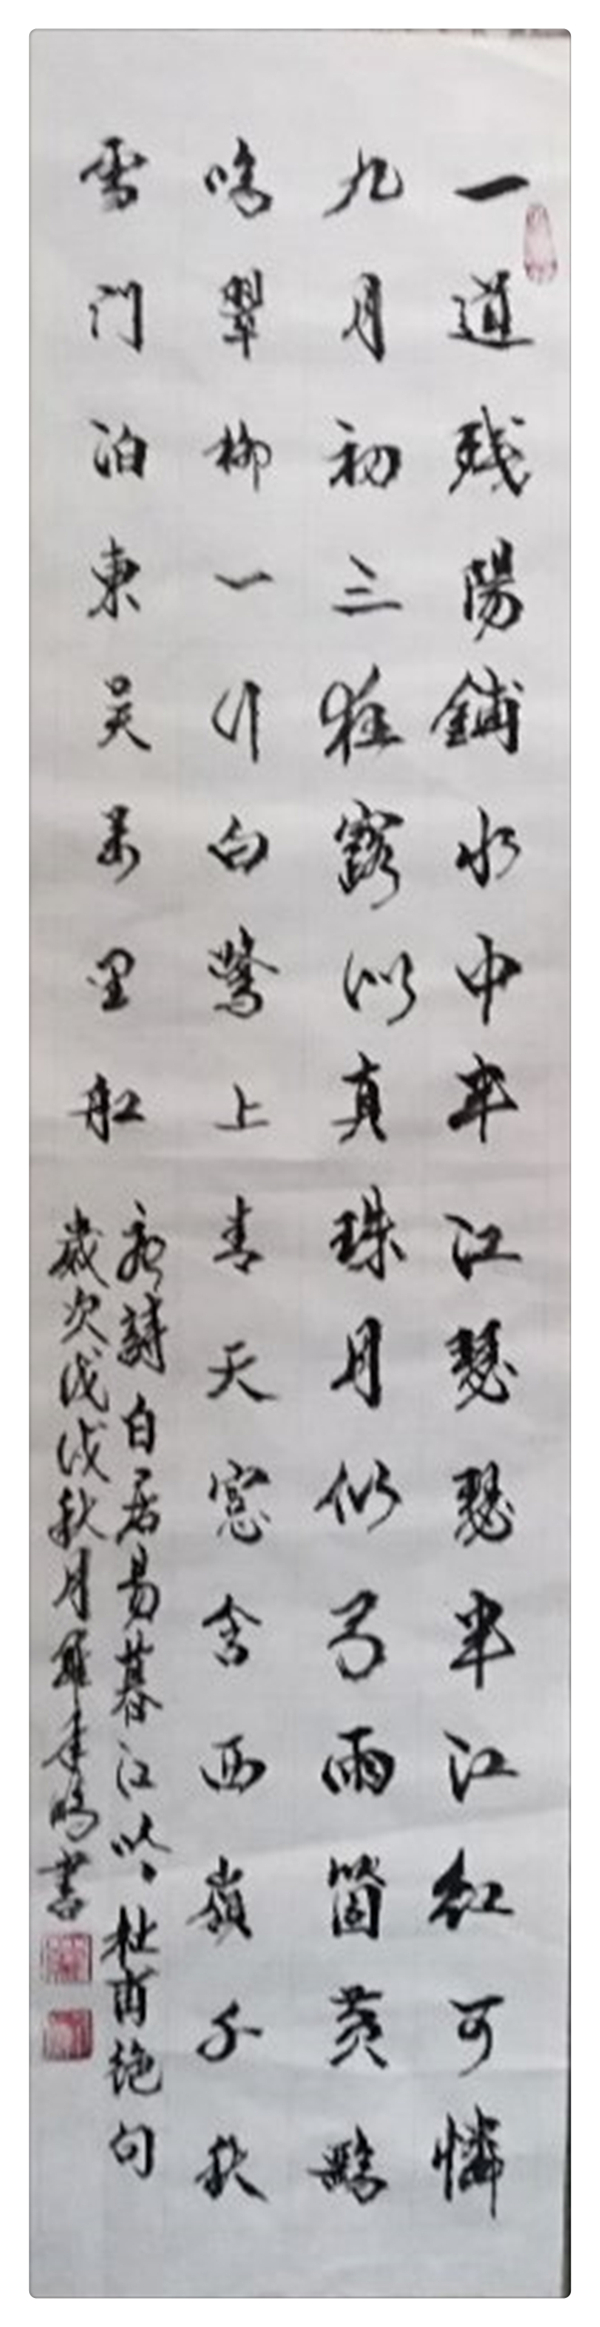 一道残陽鋪水中半江瑟瑟半江紅可憐
九月初三夜露似真珠月似弓兩箇黄鸝
鳴翠柳一行白鷺上青天窓含西嶺千秋
雪門泊東吴萬里船
詩白居易暮江吟、杜甫绝句
歲次戊戌秋月書